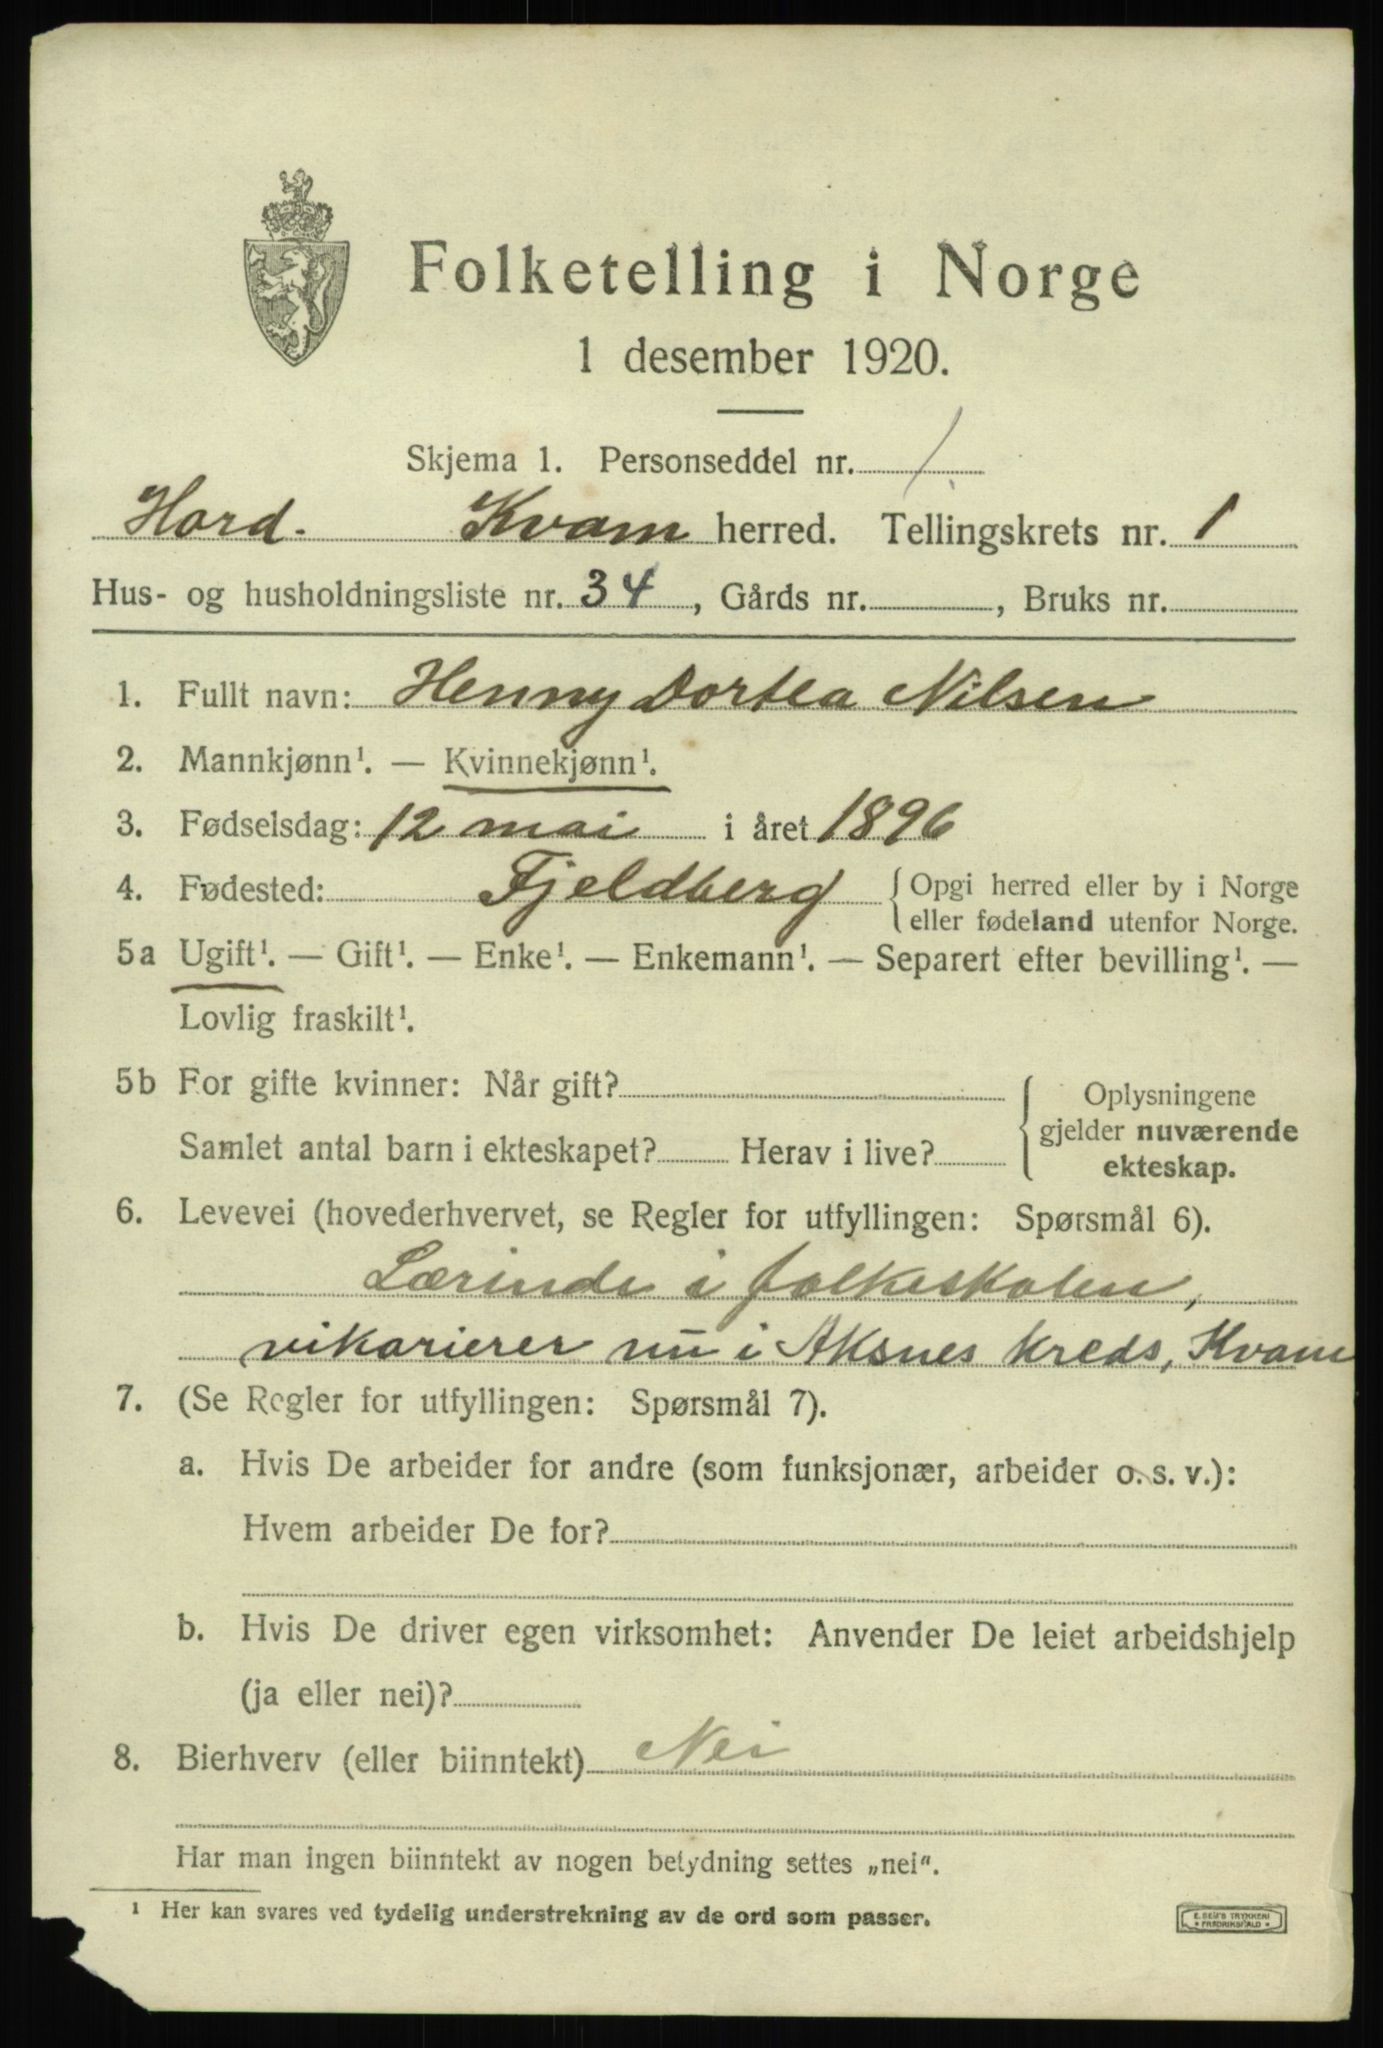 Folketelling i Norge
1 desember 1920.
Skjema 1. Personseddel nr. 1.
Hord. Kvam herred. Tellingskrets nr. 1
Hus- og husholdningsliste nr. 34, Gårds nr. , Bruks nr.
1. Fullt navn: Henny Dortea Nilsen
2. Mannkjønn¹. — Kvinnekjønn¹.
3. Fødselsdag: 12 mai i året 1896
4. Fødested: Fjeldberg { Opgi herred eller by i Norge
eller fødeland utenfor Norge.
5a Ugift¹. — Gift¹. — Enke¹. — Enkemann¹. — Separert efter bevilling¹. —
Lovlig fraskilt¹.
5b For gifte kvinner: Når gift?
Samlet antal barn i ekteskapet? Herav i live?
{ Oplysningene
gjelder nuværende
ekteskap.
6. Levevei (hovederhvervet, se Regler for utfyllingen: Spørsmål 6).
Lærinde i folkeskolen,
vikarierer nu i Aksnes kreds, Kvam
7. (Se Regler for utfyllingen: Spørsmål 7).
a. Hvis De arbeider for andre (som funksjonær, arbeider o. s. v.):
Hvem arbeider De for?
b. Hvis De driver egen virksomhet: Anvender De leiet arbeidshjelp
(ja eller nei)?
8. Bierhverv (eller biinntekt) Nei
Har man ingen biinntekt av nogen betydning settes „nei“.
¹ Her kan svares ved tydelig understrekning av de ord som passer.
E. SEM'S TRYKKERI
* FREDRIKSHALD *